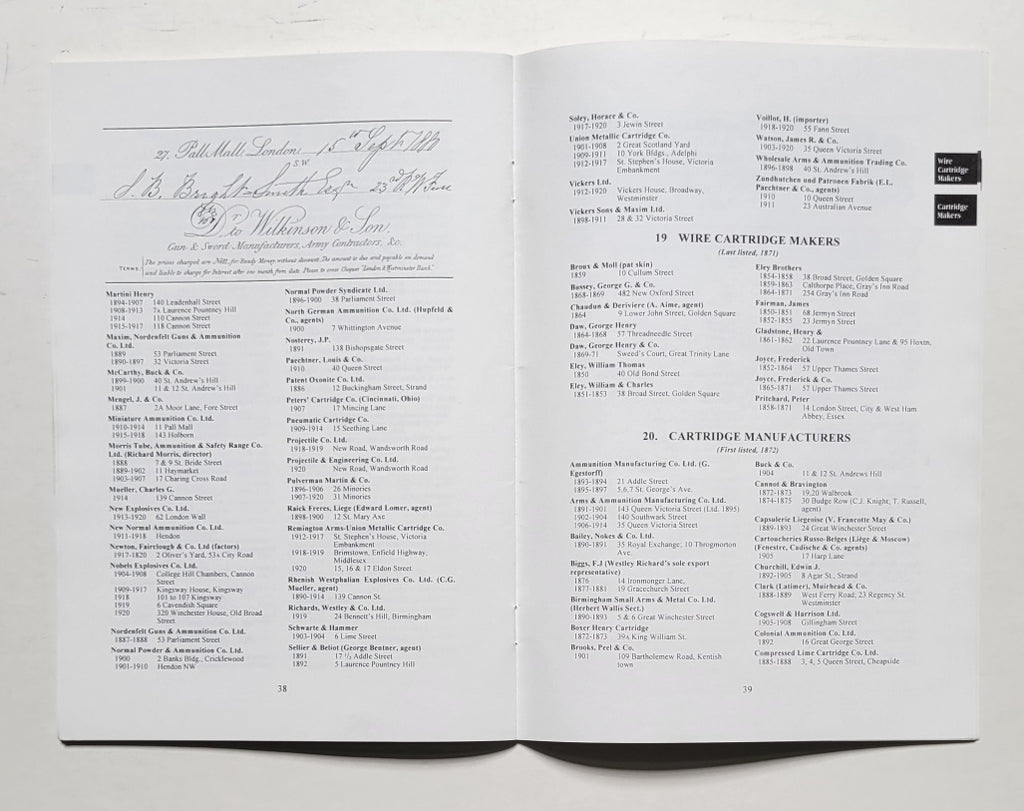 27, Pall Mall, London,
S.W.
15th Sept
J. B. Bright-Smith Esqr
Dr to Wilkinson & Son,
Gun & Sword Manufacturers, Army Contractors, &c.
TERMS
The prices charged are Nett, for Ready Money without discount. The amount is due and payable on demand
and liable to charge for Interest after one month from date. Please to cross Cheques "London & Westminster Bank."
Martini Henry
1894-1907 140 Leadenhall Street
1908-1913 7a Laurence Pountney Hill
1914 110 Cannon Street
1915-1917 118 Cannon Street
Maxim, Nordenfelt Guns & Ammunition
Co. Ltd.
1889 53 Parliament Street
1890-1897 32 Victoria Street
McCarthy, Buck & Co.
1899-1900 40 St. Andrew's Hill
1901 11 & 12 St. Andrew's Hill
Mengel, J. & Co.
1887 2A Moor Lane, Fore Street
Miniature Ammunition Co. Ltd.
1910-1914 11 Pall Mall
1915-1918 143 Holborn
Morris Tube, Ammunition & Safety Range Co.
Ltd. (Richard Morris, director)
1888 7 & 9 St. Bride Street
1889-1902 11 Haymarket
1903-1907 17 Charing Cross Road
Mueller, Charles G.
1914 139 Cannon Street
New Explosives Co. Ltd.
1913-1920 62 London Wall
New Normal Ammunition Co. Ltd.
1911-1918 Hendon
Newton, Fairclough & Co. Ltd (factors)
1917-1820 2 Oliver's Yard, 53A City Road
Nobels Explosives Co. Ltd.
1904-1908 College Hill Chambers, Cannon
Street
1909-1917 Kingsway House, Kingsway
1918 101 to 107 Kingsway
1919 6 Cavendish Square
1920 320 Winchester House, Old Broad
Street
Nordenfelt Guns & Ammunition Co. Ltd.
1887-1888 53 Parliament Street
Normal Powder & Ammunition Co. Ltd.
1900 2 Banks Bldg., Cricklewood
1901-1910 Hendon NW
Normal Powder Syndicate Ltd.
1896-1900 38 Parliament Street
North German Ammunition Co. Ltd. (Hupfeld &
Co., agents)
1900 7 Whittington Avenue
Nosterey, J.P.
1891 138 Bishopsgate Street
Paechtner, Louis & Co.
1910 40 Queen Street
Patent Oxonite Co. Ltd.
1886 12 Buckingham Street, Strand
Peters' Cartridge Co. (Cincinnati, Ohio)
1907 17 Mincing Lane
Pneumatic Cartridge Co.
1909-1914 15 Seething Lane
Projectile Co. Ltd.
1918-1919 New Road, Wandsworth Road
Projectile & Engineering Co. Ltd.
1920 New Road, Wandsworth Road
Pulverman Martin & Co.
1896-1906 26 Minories
1907-1920 31 Minories
Raick Freres, Liege (Edward Lomer, agent)
1898-1900 12 St. Mary Axe
Remington Arms-Union Metallic Cartridge Co.
1912-1917 St. Stephen's House, Victoria
Embankment
1918-1919 Brimstown, Enfield Highway,
Middlesex
1920 15, 16 & 17 Eldon Street
Rhenish Westphalian Explosives Co. Ltd. (C.G.
Mueller, agent)
1890-1914 139 Cannon St.
Richards, Westley & Co. Ltd.
1919 24 Bennett's Hill, Birmingham
Schwarte & Hammer
1903-1904 6 Lime Street
Sellier & Beliot (George Bentner, agent)
1891 17 ½ Addle Street
1892 5 Laurence Pountney Hill
38
Soley, Horace & Co.
1917-1920 3 Jewin Street
Union Metallic Cartridge Co.
1901-1908 2 Great Scotland Yard
1909-1911 10 York Bldgs., Adelphi
1912-1917 St. Stephen's House, Victoria
Embankment
Vickers Ltd.
1912-1920 Vickers House, Broadway,
Westminster
Vickers Sons & Maxim Ltd.
1898-1911 28 & 32 Victoria Street
Voillot, H. (importer)
1918-1920 55 Fann Street
Watson, James R. & Co.
1903-1920 35 Queen Victoria Street
Wholesale Arms & Ammunition Trading Co.
1896-1898 40 St. Andrew's Hill
Zundhutchen und Patronen Fabrik (E.L.
Paechtner & Co., agents)
1910 10 Queen Street
1911 23 Australian Avenue
Wire
Cartridge
Makers
Cartridge
Makers
19 WIRE CARTRIDGE MAKERS
(Last listed, 1871)
Broux & Moll (pat skin)
1859 10 Cullum Street
Bussey, George G. & Co.
1868-1869 482 New Oxford Street
Chaudun & Deriviere (A. Aime, agent)
1864 9 Lower John Street, Golden Square
Daw, George Henry
1864-1868 57 Threadneedle Street
Daw, George Henry & Co.
1869-71 Sweed's Court, Great Trinity Lane
Eley, William Thomas
1850 40 Old Bond Street
Eley, William & Charles
1851-1853 38 Broad Street, Golden Square
Eley Brothers
1854-1858 38 Broad Street, Golden Square
1859-1863 Calthorpe Place, Gray's Inn Road
1864-1871 254 Gray's Inn Road
Fairman, James
1850-1851 68 Jermyn Street
1852-1855 23 Jermyn Street
Gladstone, Henry &
1861-1862 22 Laurence Pountney Lane & 95 Hoxtn,
Old Town
Joyce, Frederick
1852-1864 57 Upper Thames Street
Joyce, Frederick & Co.
1865-1871 57 Upper Thames Street
Pritchard, Peter
1858-1871 14 London Street, City & West Ham
Abbey, Essex
20. CARTRIDGE MANUFACTURERS
(First listed, 1872)
Ammunition Manufacturing Co. Ltd. (G.
Egestorff)
1893-1894 21 Addle Street
1895-1897 5,6,7 St. George's Ave.
Arms & Ammunition Manufacturing Co. Ltd.
1891-1901 143 Queen Victoria Street (Ltd. 1895)
1902-1904 140 Southwark Street
1906-1914 35 Queen Victoria Street
Bailey, Nokes & Co. Ltd.
1890-1891 35 Royal Exchange; 10 Throgmorton
Ave.
Biggs, F.J (Westley Richard's sole export
representative)
1876 14 Ironmonger Lane,
1877-1881 19 Gracechurch Street
Birmingham Small Arms & Metal Co. Ltd.
(Herbert Wallis Sect.)
1890-1893 5 & 6 Great Winchester Street
Boxer Henry Cartridge
1872-1873 39A King William St.
Brooks, Peel & Co.
1901 109 Bartholemew Road, Kentish
town
Buck & Co.
1904 11 & 12 St. Andrews Hill
Cannot & Bravington
1872-1873 19,20 Walbrook
1874-1875 30 Budge Row (C.J. Knight; T. Russell,
agent)
Capsulerie Liegeoise (V. Francotte May & Co.)
1889-1893 24 Great Winchester Street
Cartoucheries Russo-Beiges (Liège & Moscow)
(Fenestre, Cadische & Co. agents)
1905 17 Harp Lane
Churchill, Edwin J.
1892-1905 8 Agar St., Strand
Clark (Latimer), Muirhead & Co.
1888-1889 West Ferry Road; 23 Regency St.
Westminster
Cogswell & Harrison Ltd.
1905-1908 Gillingham Street
Colonial Ammunition Co. Ltd.
1892 16 Great George Street
Compressed Lime Cartridge Co. Ltd.
1885-1888 3, 4, 5 Queen Street, Cheapside
39